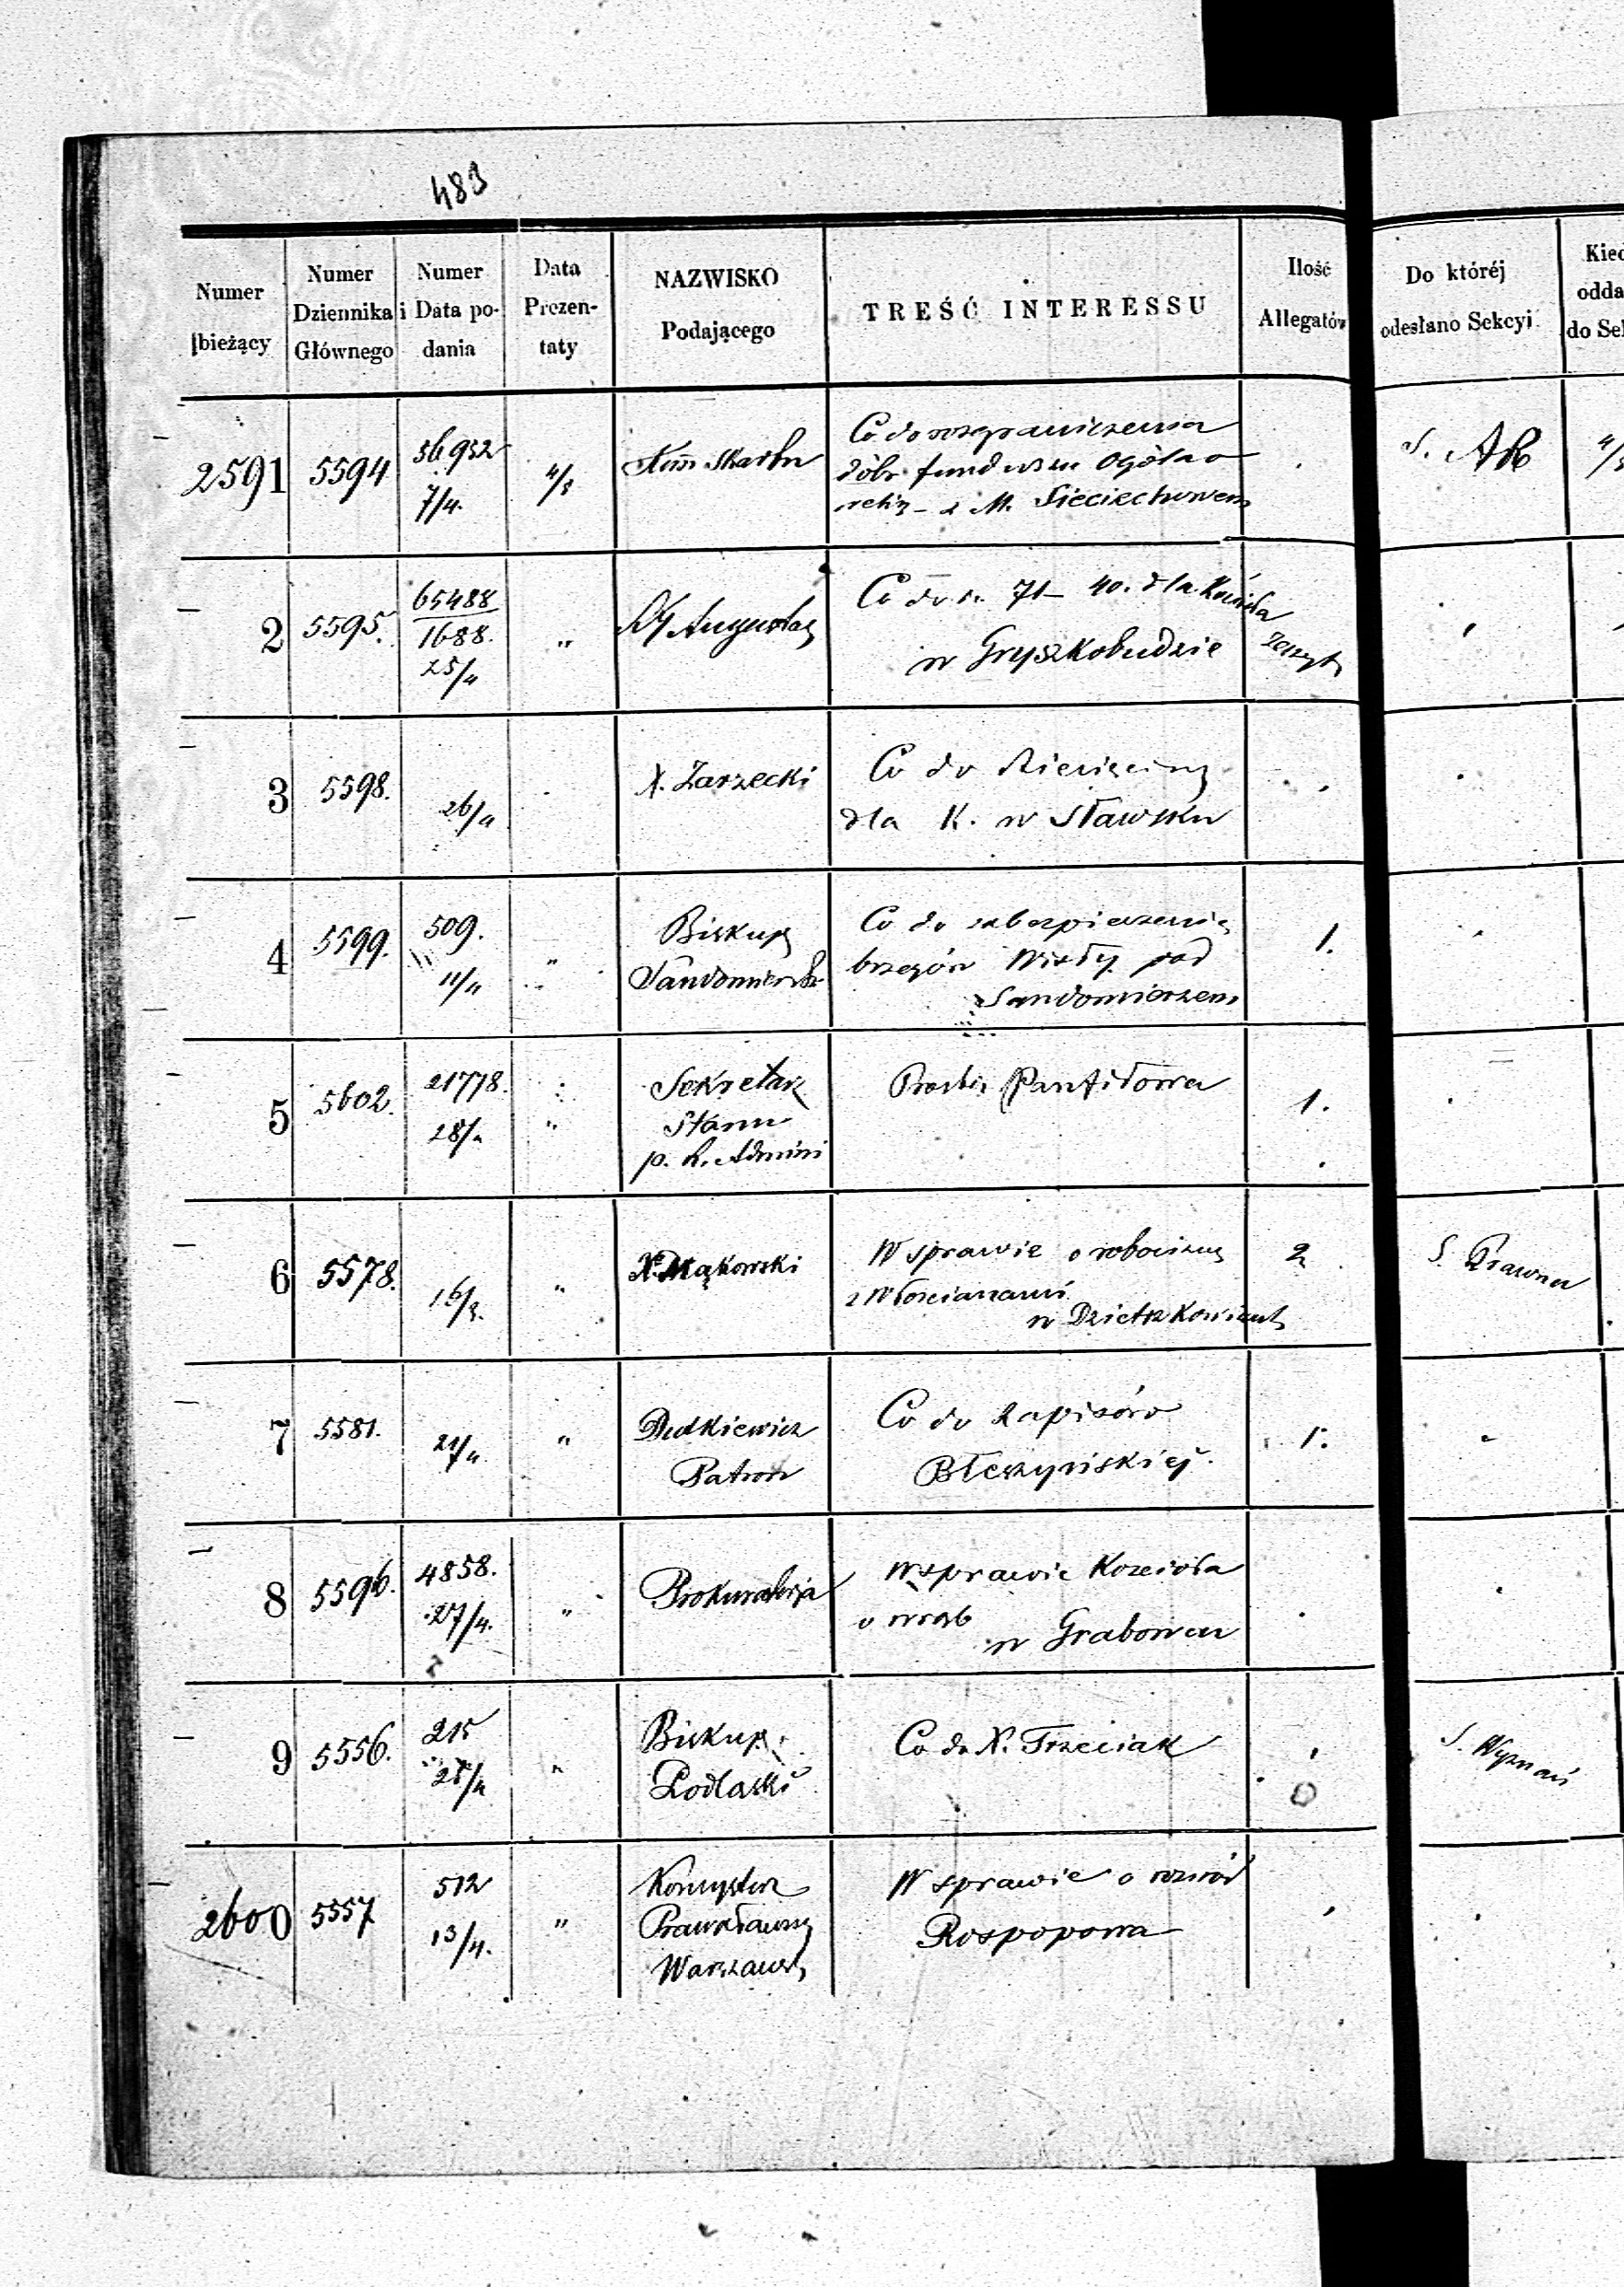 483
Numer bieżący | Numer Dziennika Głównego | Numer i Data podania | Data Prezentaty | NAZWISKO Podającego | TREŚĆ INTERESSU | Ilość Allegatów | Do któréj odesłano Sekcyi | Kied odda do Sek
2591 | 5594 | 56952 7/4. | 4/5 | Kom Skarbu | Co do rozgraniczenia
dóbr funduszu Ogólno
relig – z M. Sieciechowem | S. AR | 4/5
2 | 5595. | 65488 1688. 25/4 | " | RG Augustow | Co do r. 71– 40. dla Kościoła
w Gryszkobudzie | zeszyt
3 | 5598. | 26/4 | X. Zarzecki | Co do
dla K. w Sławsku
4 | 5599. | 509. 11/4 | " | Biskup
Sandomierski | Co do zabezpieczenia
brzegów Wisły pod
Sandomierzem | 1.
5 | 5602. | 21778. 28/4 | " | Sekretarz
Stanu
p. R. Admini | Prośba Panfiłowa | 1.
6 | 5578. | 16/3. | " | X. Mąkowski | W sprawie o robociznę
z Włościanami
w | 2 | S. Prawna
7 | 5581. | 21/4. | " | Dudkiewicz
Patron | Co do zapisów
Błeszyńskiéj. | 1.
8 | 5596. | 4858. 27/4. | " | Prokuratorja | W sprawie Kościoła
o wrąb
w Grabowcu
9 | 5556. | 215 25/4 | " | Biskup
Podlaski | Co do X. Trzeciak | S. Wyznań
2600 | 5557 | 512 13/4. | " | Konsystorz
Prawosławny
Warszawsk | W sprawie o rozwód
Rospopowa